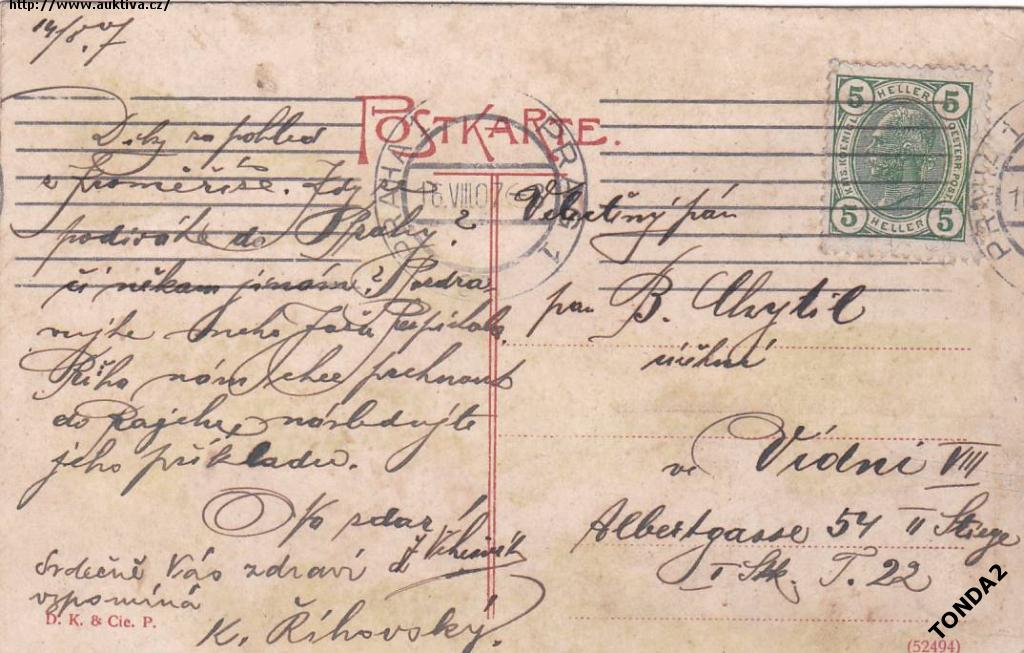 http://www.auktiva.cz/
14/8 07
POSTKARTE.
PRAHA 1 PRAG 1
16.VIII.07
5 HELLER 5
KAIS. KOENIGL. OESTERR. POST
5 HELLER 5
PRAHA 1
Díky za pohled
z Kroměříže. Kdy se
podíváte do Prahy?
či někam jinam? Pozdra
vujte
nám chce prchnout
do následujte
jeho příkladu.
Na zdar!
Srdečně Vás zdraví a
vzpomíná
K. Říhovský.
Velectěný pán
pan B. Chytil
účetní
ve Vídni VIII
Albertgasse 54 II Stiege
I Stk. T. 22
D. K. & Cie. P.
(52494)
TONDA2